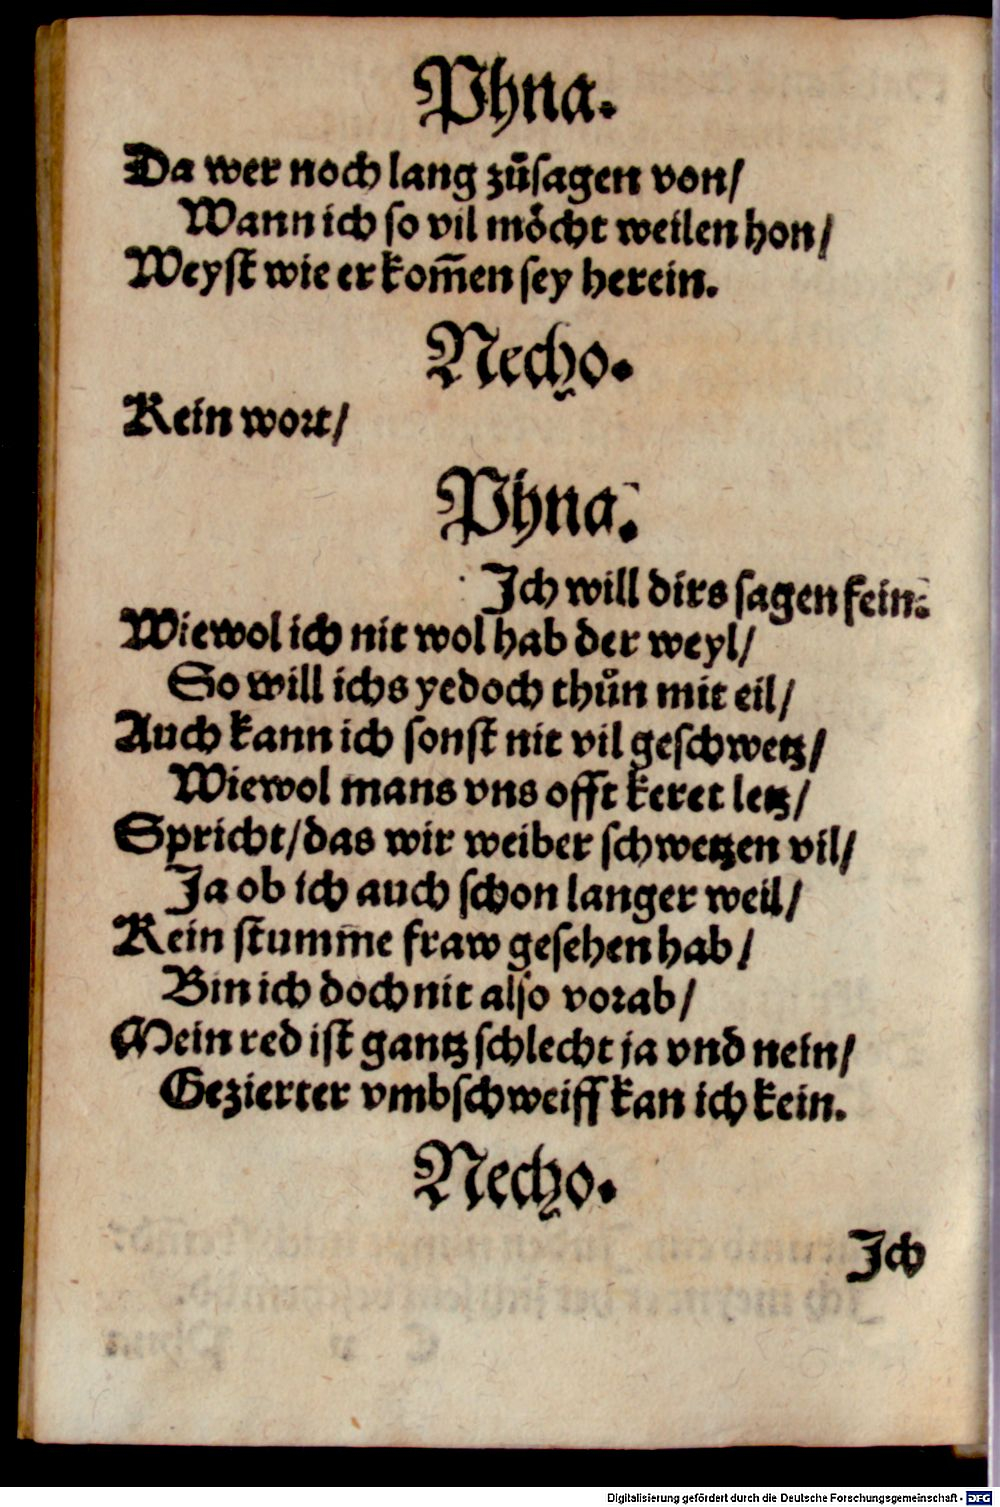 Phna.
Da wer noch lang zůsagen von/
Wann ich so vil mo̊cht weilen hon/
Weyst wie er kom̃en sey herein.
Necho.
Kein wort/
Phna.
Ich will dirs sagen fein:
Wiewol ich nit wol hab der weyl/
So will ichs yedoch thůn mit eil/
Auch kann ich sonst nit vil geschwetz/
Wiewol mans vns offt keret letz/
Spricht/das wir weiber schwetzen vil/
Ja ob ich auch schon langer weil/
Kein stumme fraw gesehen hab/
Bin ich doch nit also vorab/
Mein red ist gantz schlecht ja vnd nein/
Gezierter vmbschweiff kan ich kein.
Necho.
Ich
Digitalisierung gefördert durch die Deutsche Forschungsgemeinschaft - DFG